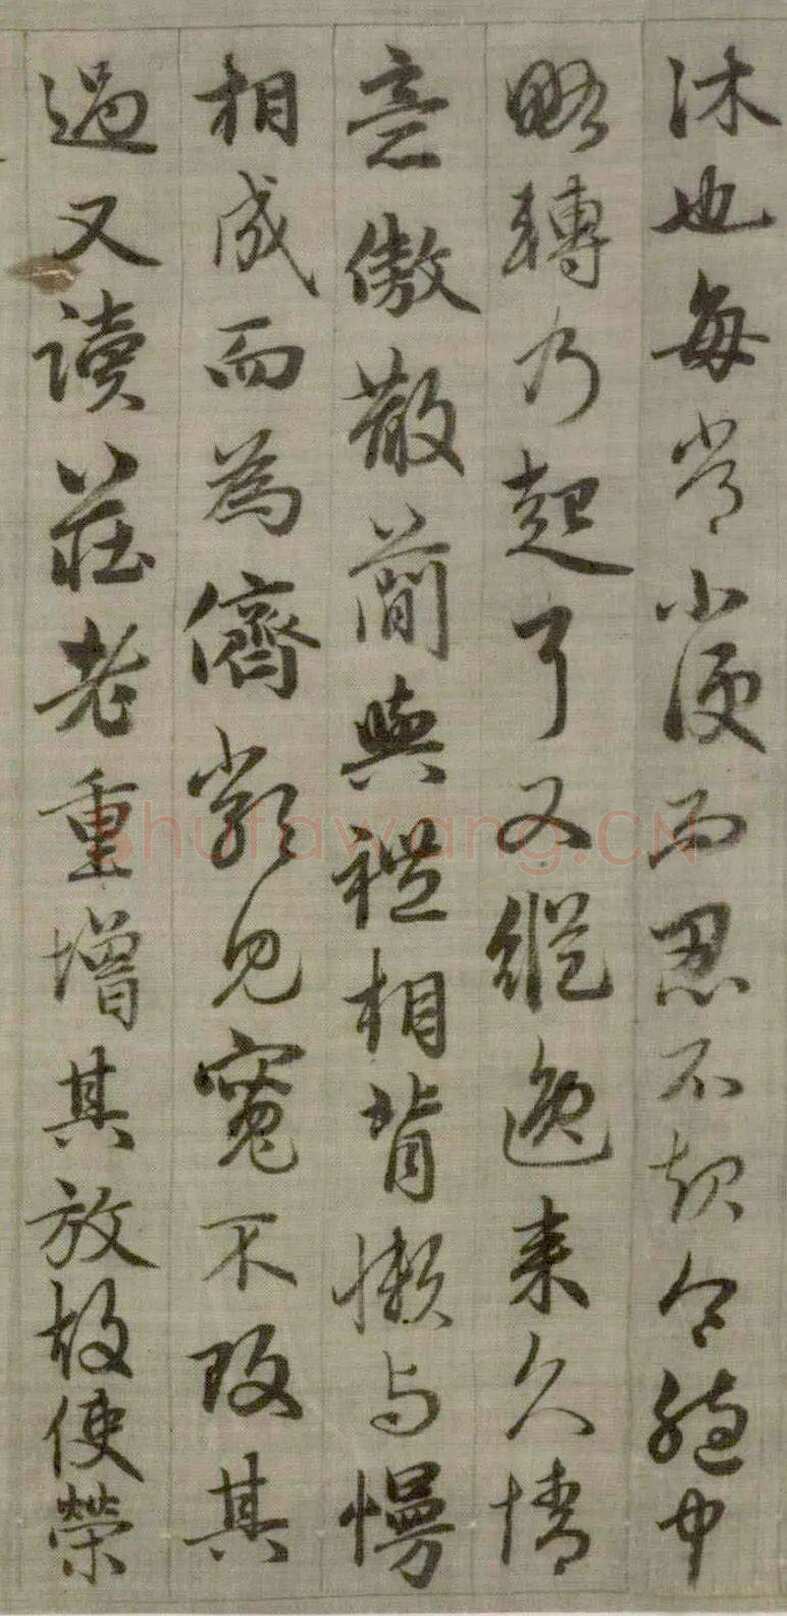 沐也每常小便而忍不起令胞中
略轉乃起耳又縱逸来久情
意傲散簡與禮相背懶与慢
相成而為儕類見寬不攻其
過又讀莊老重增其放故使榮
shufawang.CN